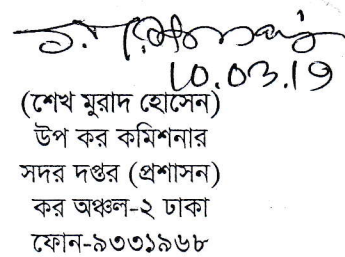 10.03.19
(শেখ মুরাদ হোসেন)
উপ কর কমিশনার
সদর দপ্তর (প্রশাসন)
কর অঞ্চল-২ ঢাকা
ফোন-৯৩৩১৯৬৮